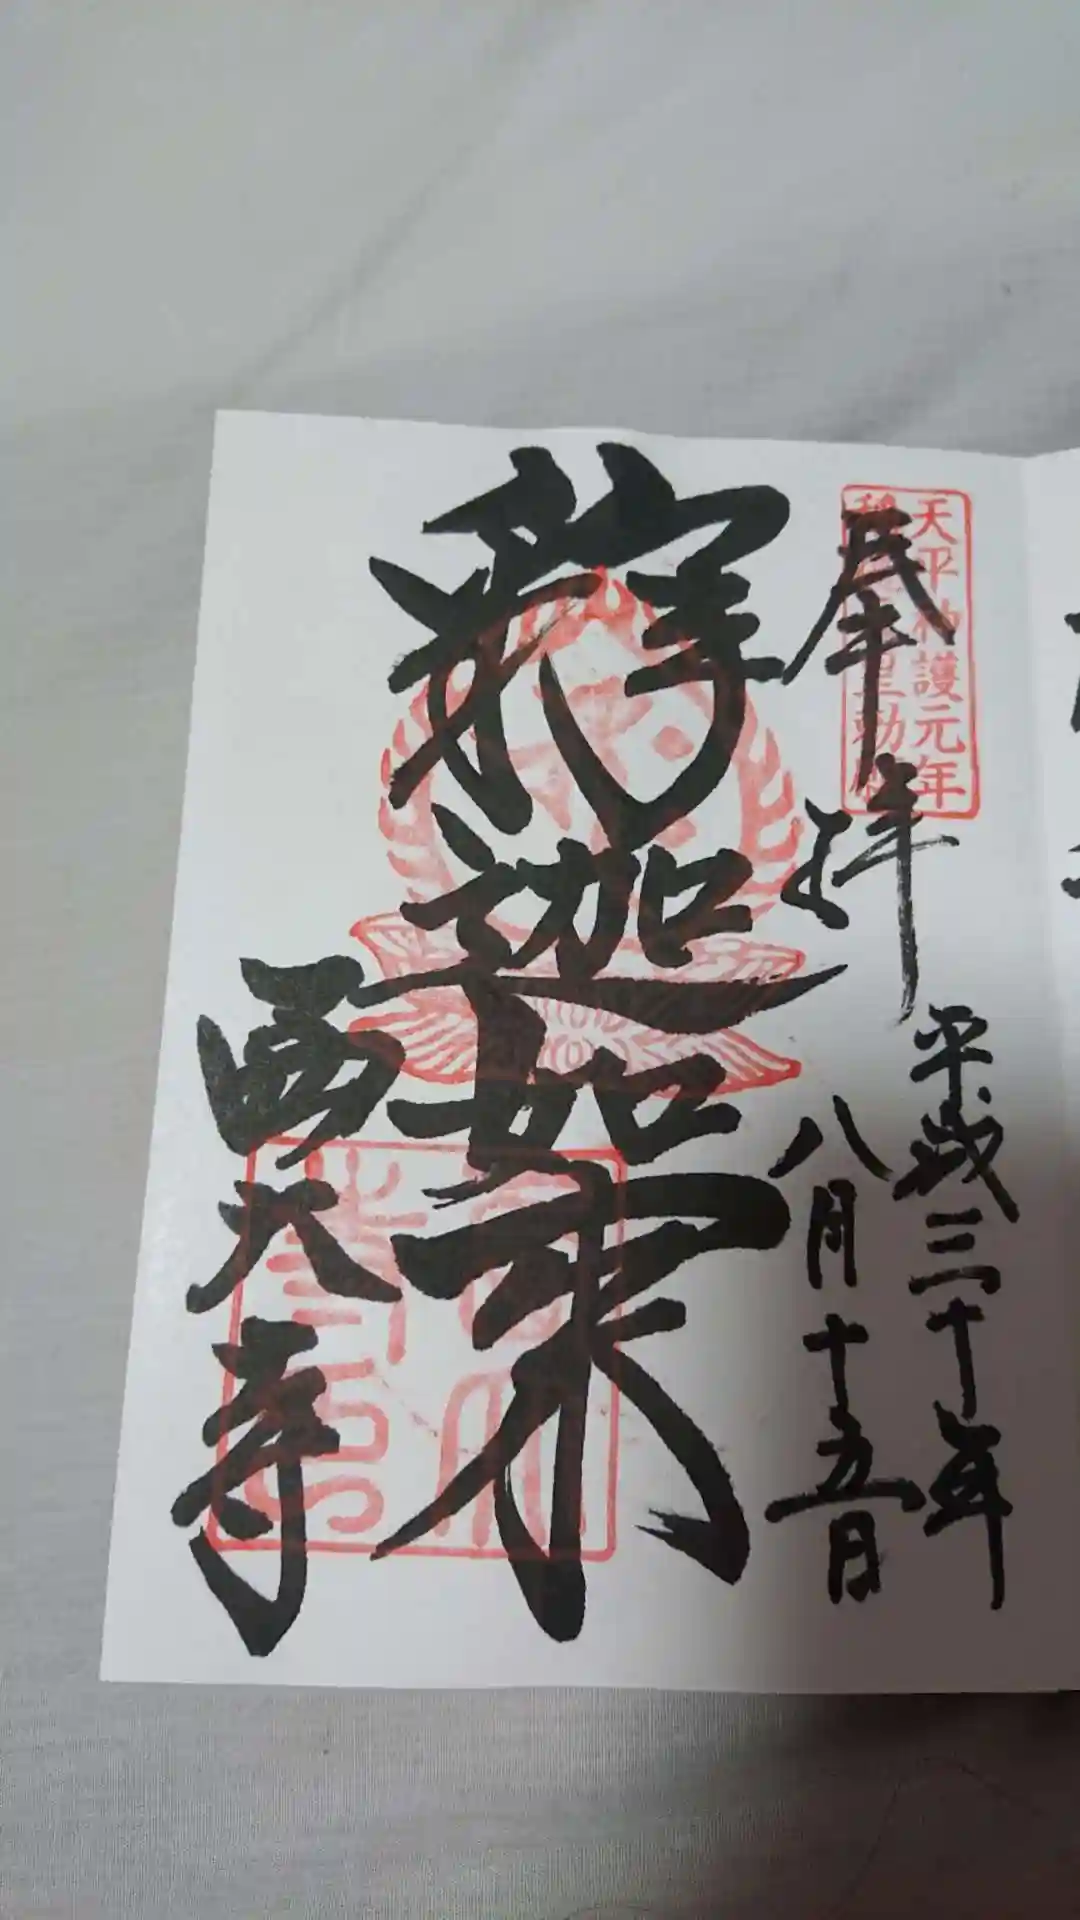 天平神護元年
奉拝
平成三十年
八月十五日
釈迦如来
西大寺